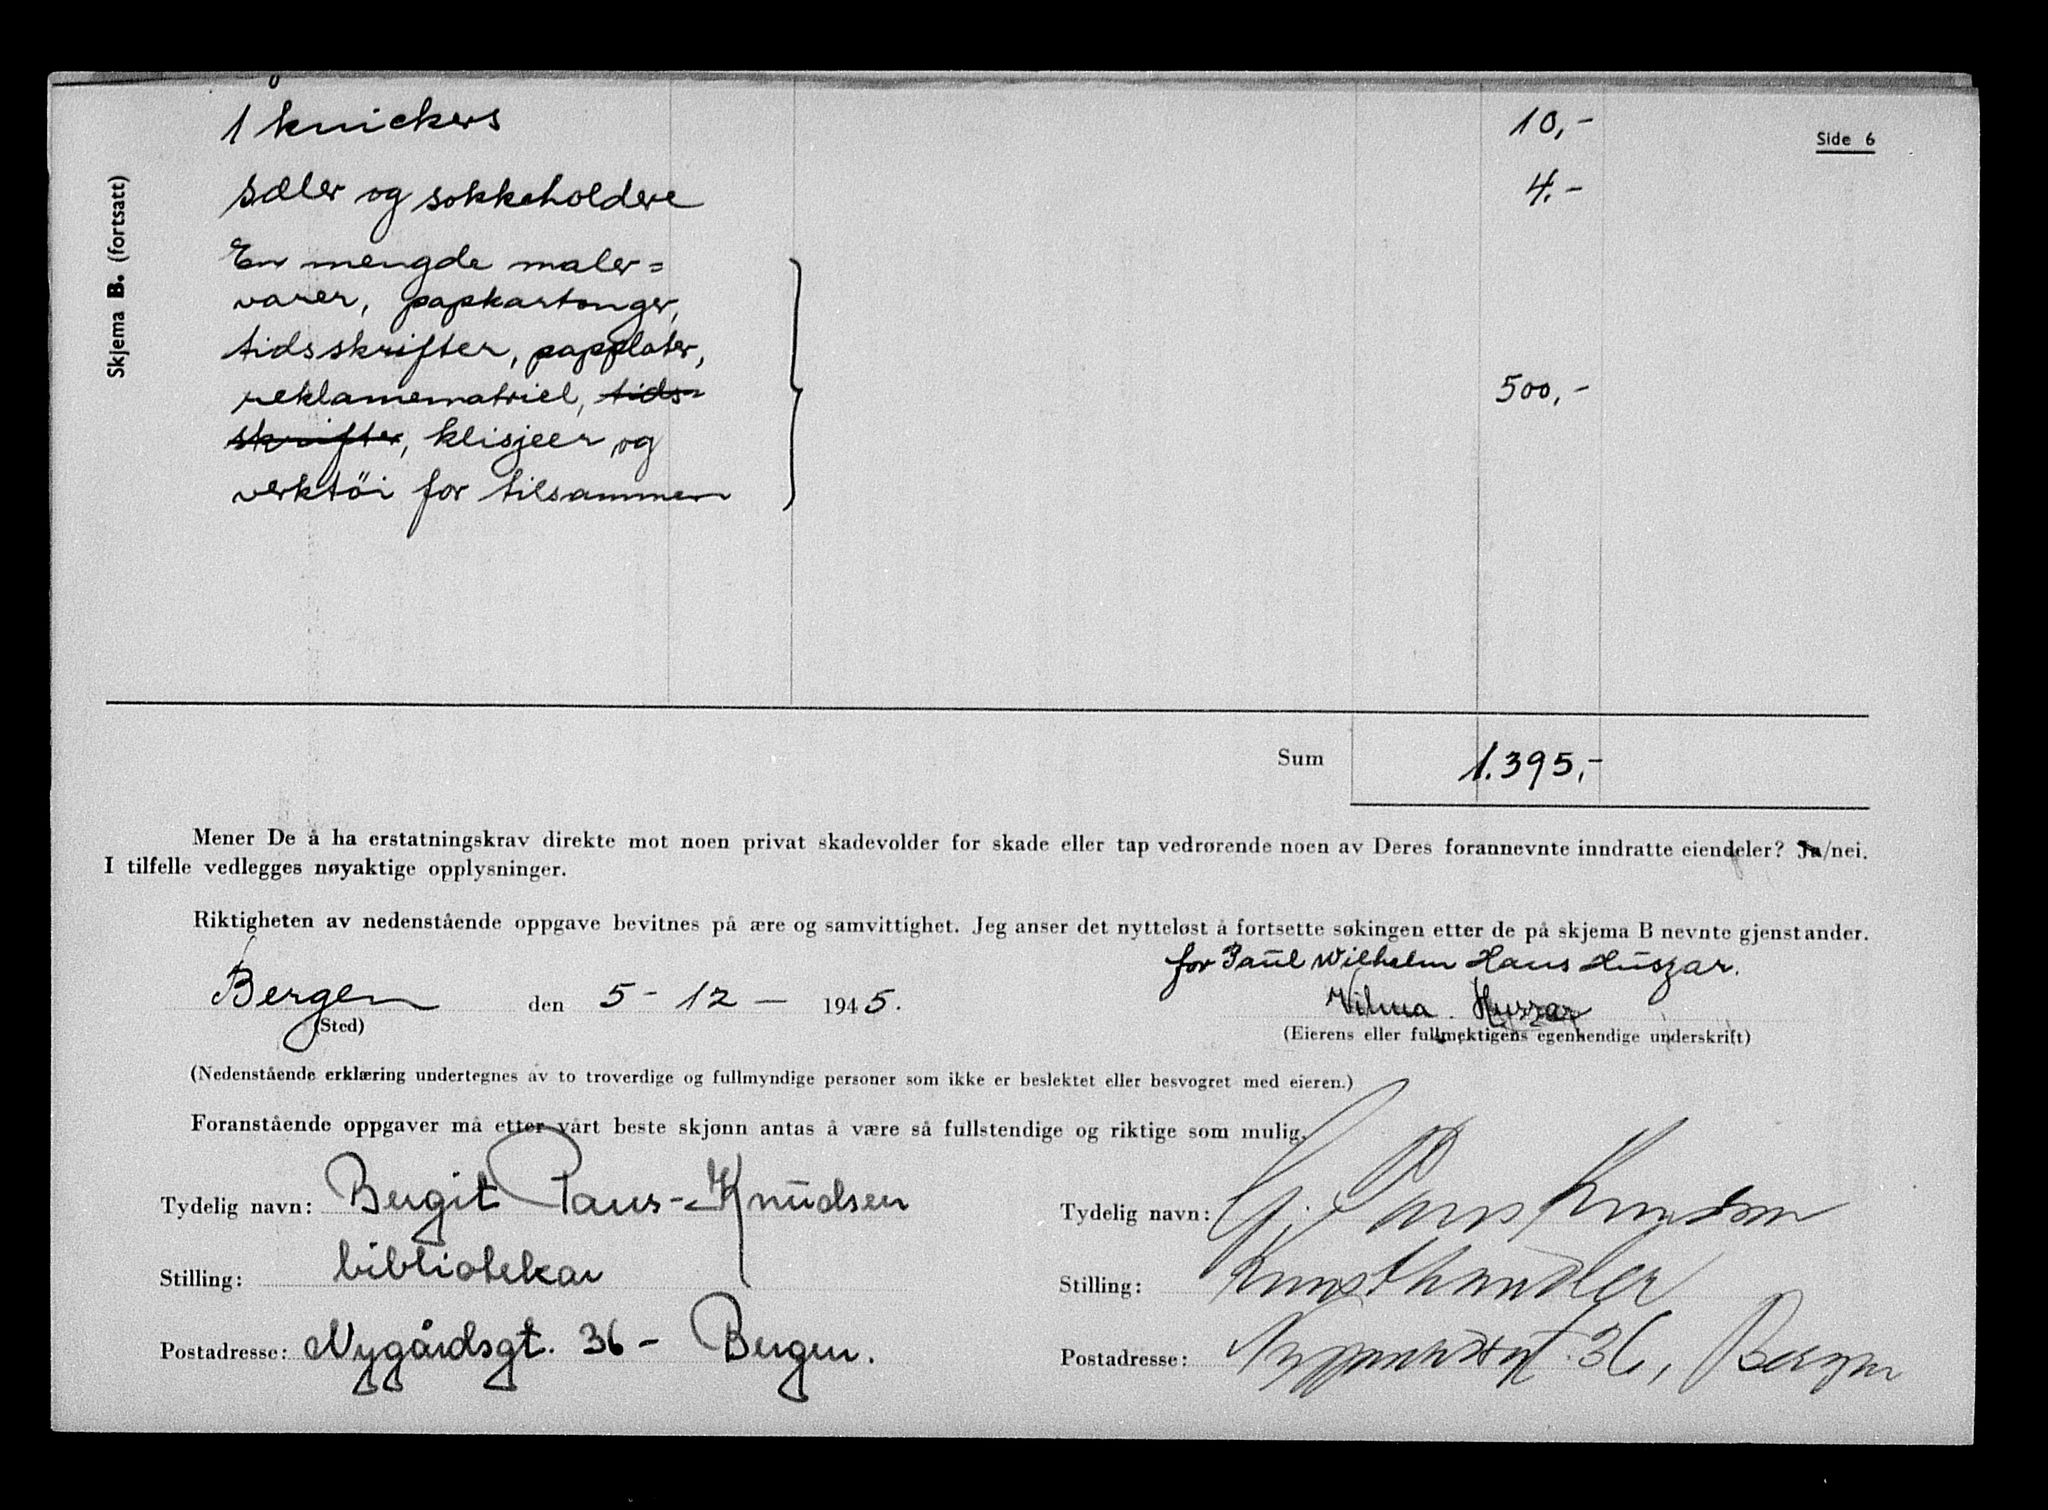 Side 6
Skjema B. (fortsatt)
1 knickers 10,-
sæler og sokkeholdere 4.-
En mengde maler=
varer, papkartonger,
tidsskrifter, papplater,
reklamematriel, tids-
skrifter, klisjeer og 500,-
verktöi for tilsammen
Sum 1.395,-
Mener De å ha erstatningskrav direkte mot noen privat skadevolder for skade eller tap vedrørende noen av Deres forannevnte inndratte eiendeler? Ja/nei.
I tilfelle vedlegges nøyaktige opplysninger.
Riktigheten av nedenstående oppgave bevitnes på ære og samvittighet. Jeg anser det nytteløst å fortsette søkingen etter de på skjema B nevnte gjenstander.
for Paul Wilhelm Hans Huszar.
Bergen den 5-12- 1945. Vilma Huszar
(Sted) (Eierens eller fullmektigens egenhendige underskrift)
(Nedenstående erklæring undertegnes av to troverdige og fullmyndige personer som ikke er beslektet eller besvogret med eieren.)
Foranstående oppgaver må etter vårt beste skjønn antas å være så fullstendige og riktige som mulig.
Tydelig navn: Bergit Paus-Knudsen Tydelig navn: G. Paus Knudsen
Stilling: bibliotekar Stilling: Kunsthandler
Postadresse: Nygårdsgt. 36 - Bergen. Postadresse: 36, Bergen